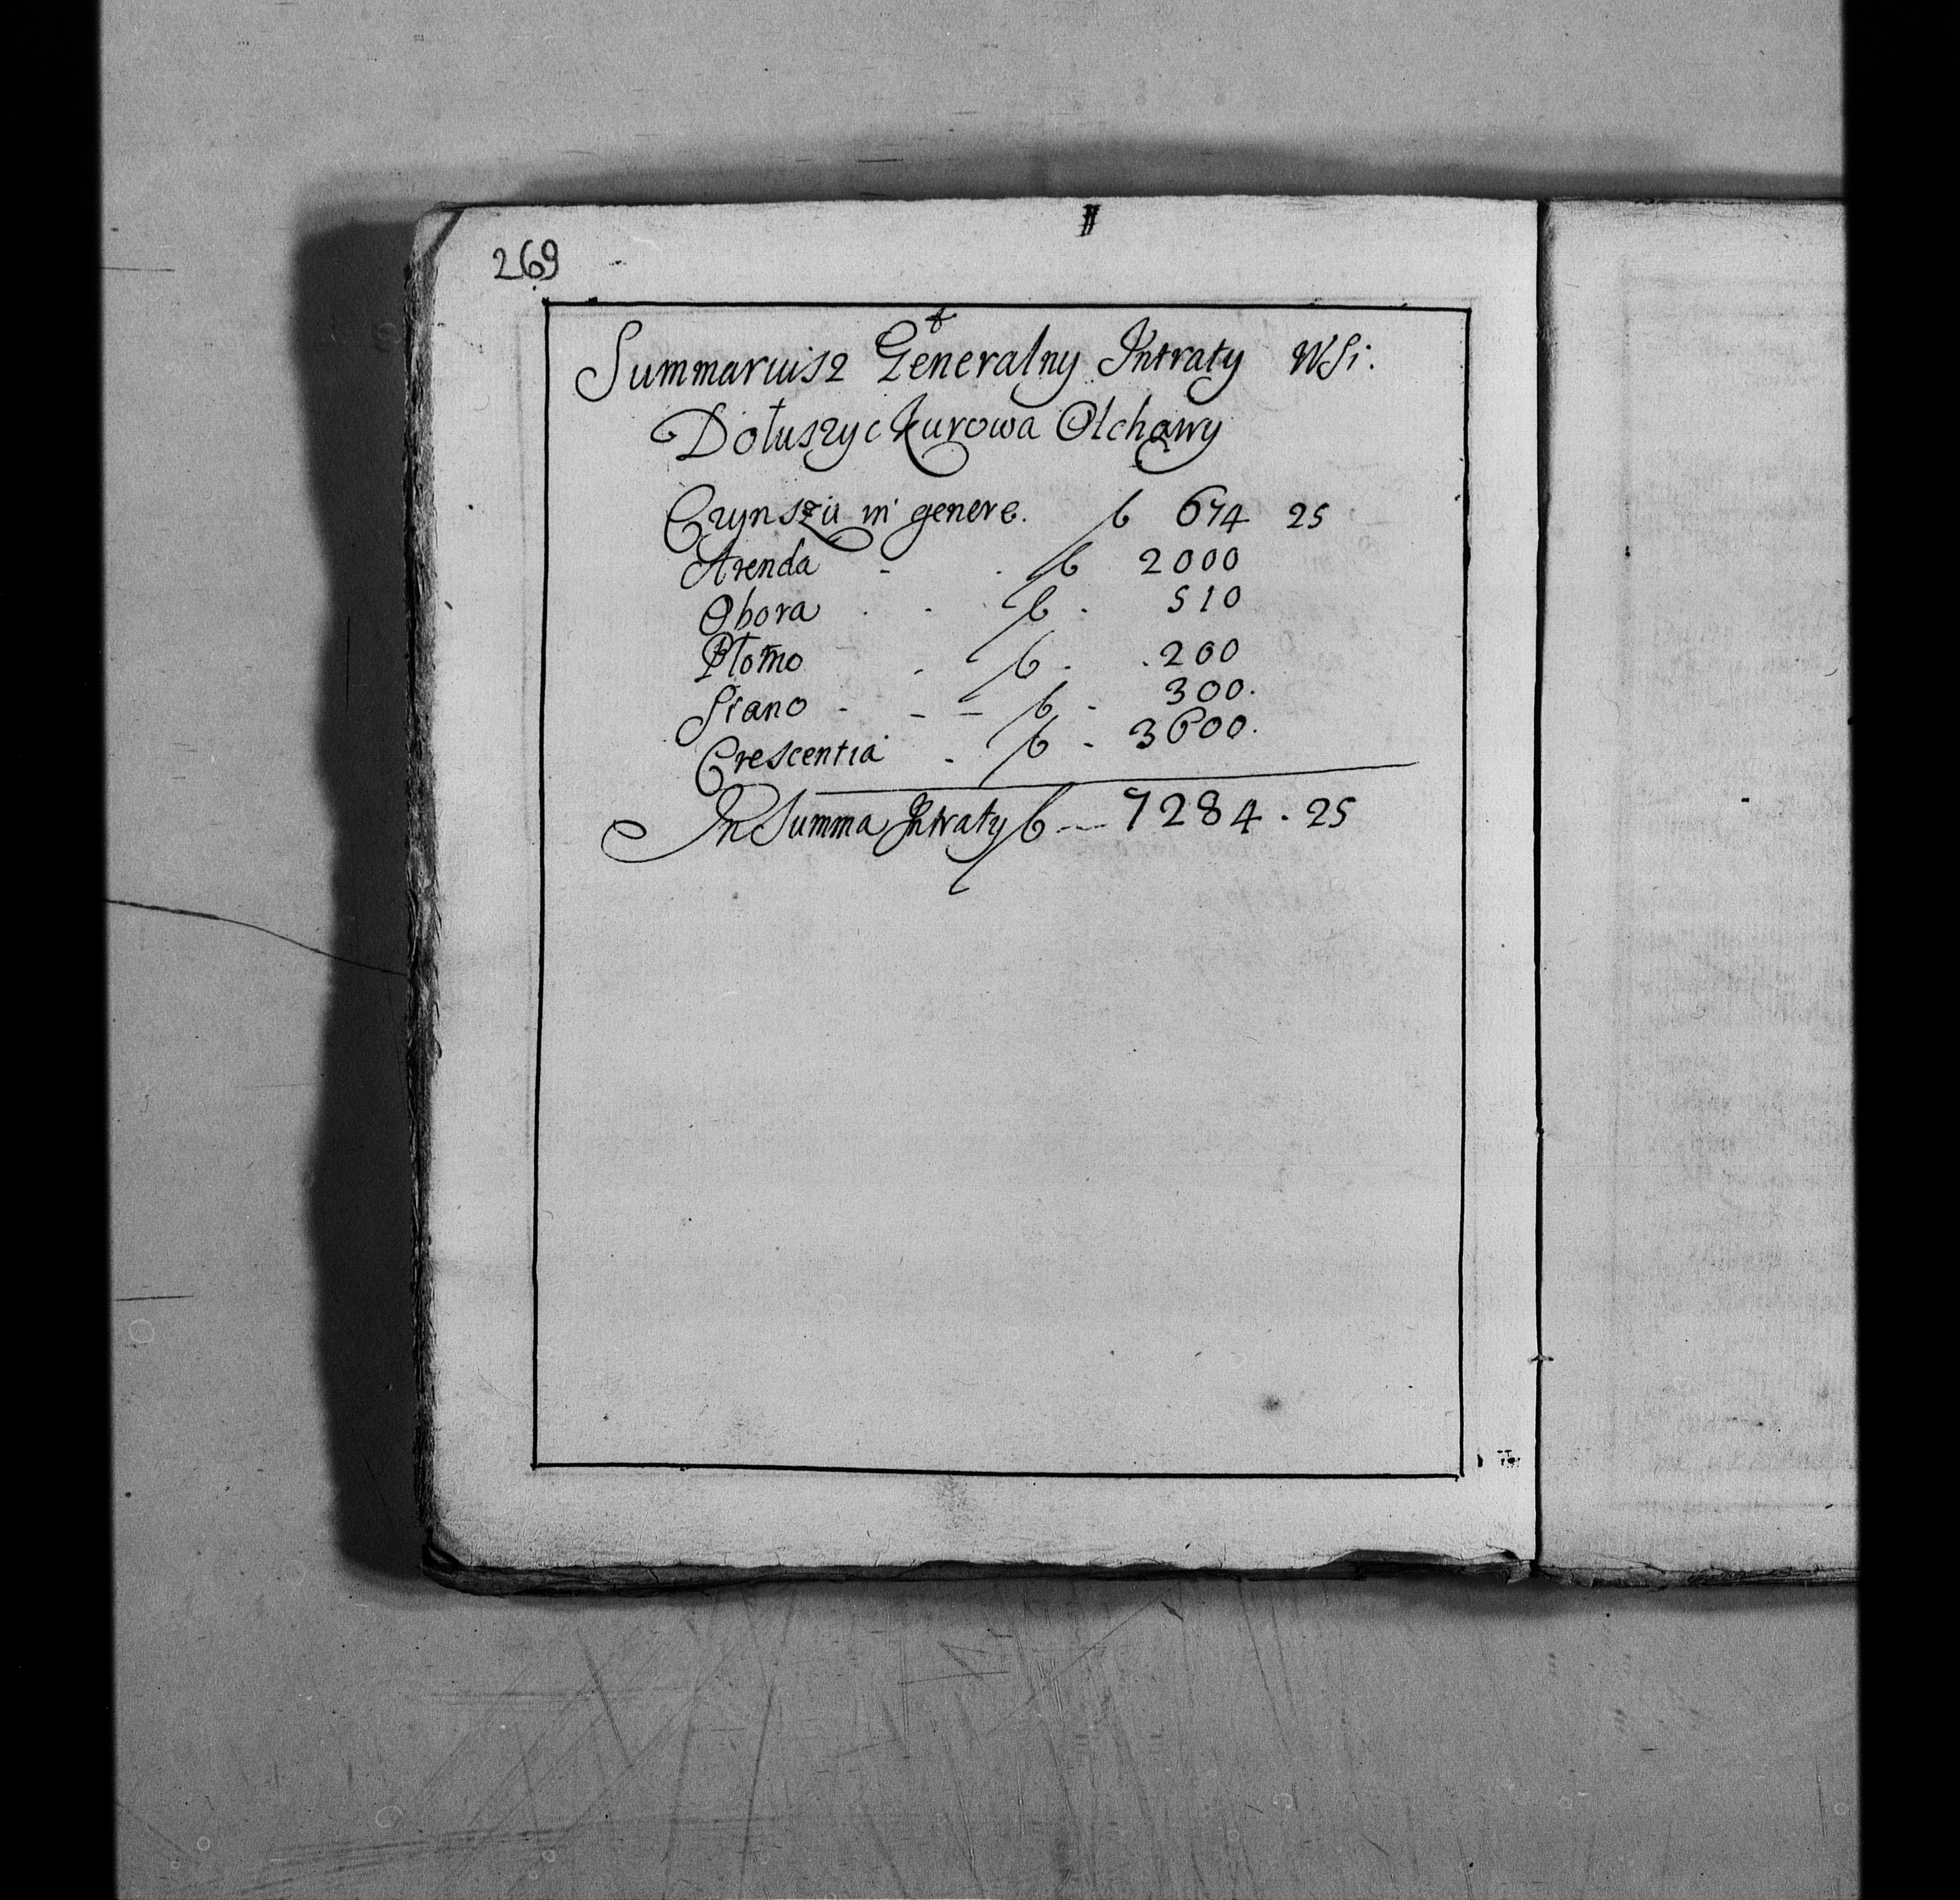 269
Summariusz Generalny Intraty WSi.
Dołuszyc Kurowa Olchawy
Czynszu in genere. f 674 25
Arenda - . f 2000
Obora . . . f . 510
Płotno . f . . 200
Siano - - - f - 300.
Crescentia . f - 3600.
In Summa Intraty f - 7284 . 25